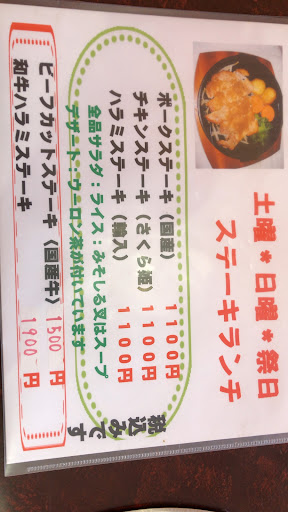 土曜*日曜*祭日
ステーキランチ
ポークステーキ (国産) 1100円
チキンステーキ (さくら姫) 1100円
ハラミステーキ (輸入) 1100円
全品サラダ:ライス:みそしる又はスープ
デザート:ウーロン茶が付いています
税込みです
ビーフカットステーキ (国産牛) 1500円
和牛ハラミステーキ 1900円